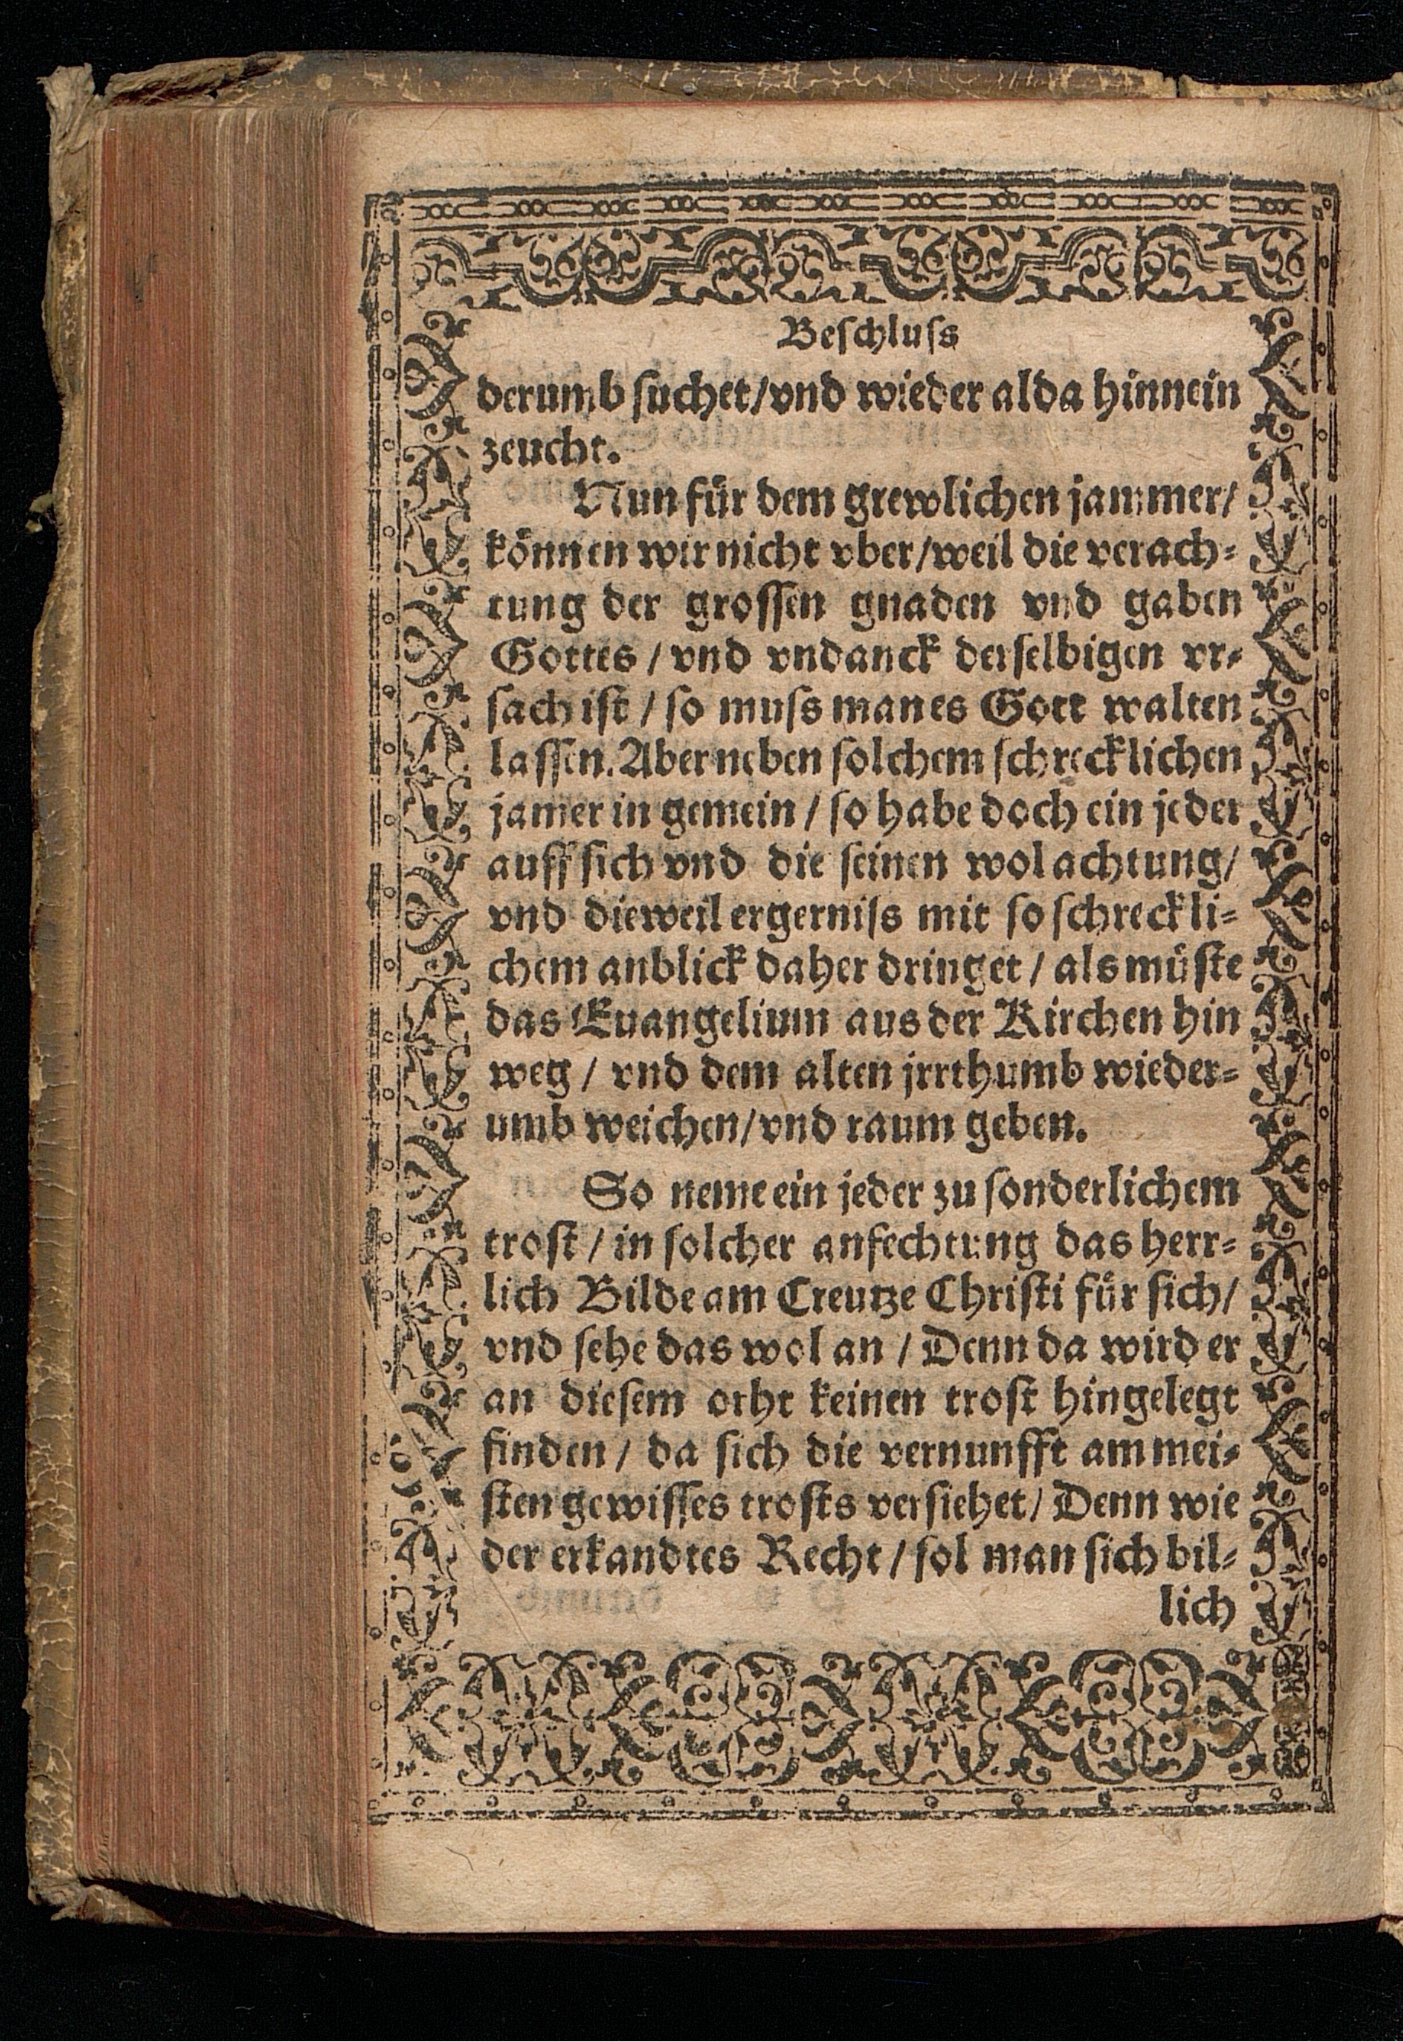 Beſchluſs
derumb ſuchet/vnd wieder alda hinnein
zeucht.
Nun für dem grewlichen jammer/
können wir nicht vber/weil die verach⸗
tung der groſſen gnaden vnd gaben
Gottes / vnd vndanck derſelbigen vr⸗
ſach iſt / ſo muſs man es Gott walten
laſſen. Aber neben ſolchem ſchrecklichen
jamer in gemein / ſo habe doch ein jeder
auff ſich vnd die ſeinen wol achtung/
vnd dieweil ergerniſs mit ſo ſchreckli⸗
chem anblick daher dringet / als müſte
das Euangelium aus der Kirchen hin
weg / vnd dem alten jrrthumb wieder⸗
umb weichen/vnd raum geben.
So neme ein jeder zu ſonderlichem
troſt / in ſolcher anfechtung das herr⸗
lich Bilde am Creutze Chriſti für ſich/
vnd ſehe das wol an / Denn da wird er
an dieſem orht keinen troſt hingelegt
finden / da ſich die vernunfft am mei⸗
ſten gewiſſes troſts verſiehet/ Denn wie
der erkandtes Recht / ſol man ſich bil⸗
lich